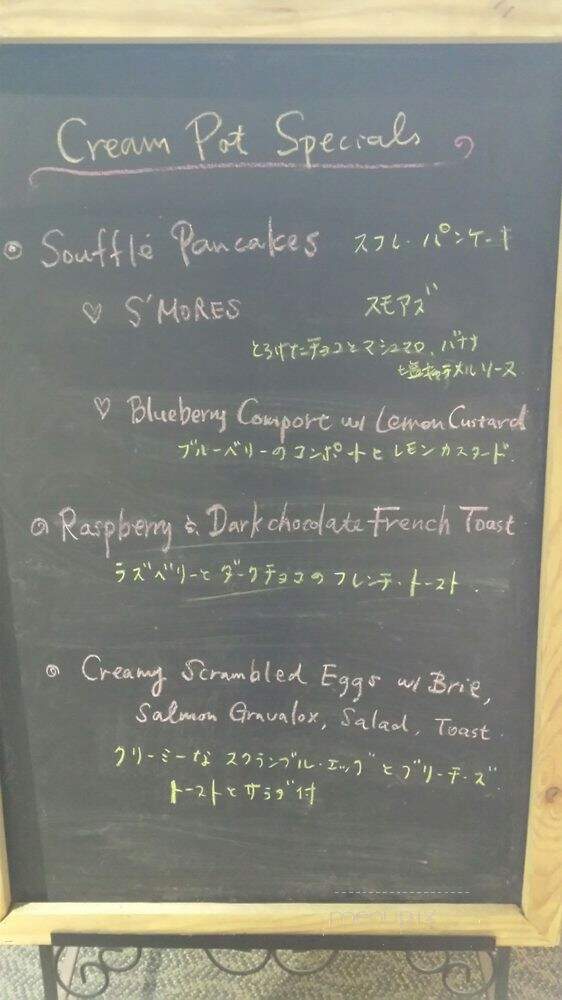 Cream Pot Specials
Soufflé Pancakes スフレ・パンケーキ
♡ S'MORES スモアズ
とろけたチョコとマシュマロ、バナナ
塩キャラメルソース
♡ Blueberry Comport w/ Lemon Custard
ブルーベリーのコンポートとレモンカスタード
Raspberry & Darkchocolate French Toast
ラズベリーとダークチョコのフレンチ・トースト
Creamy Scrambled Eggs w/ Brie,
Salmon Gravalox, Salad, Toast
クリーミーなスクランブル・エッグとブリーチーズ
トーストとサラダ付
menupix